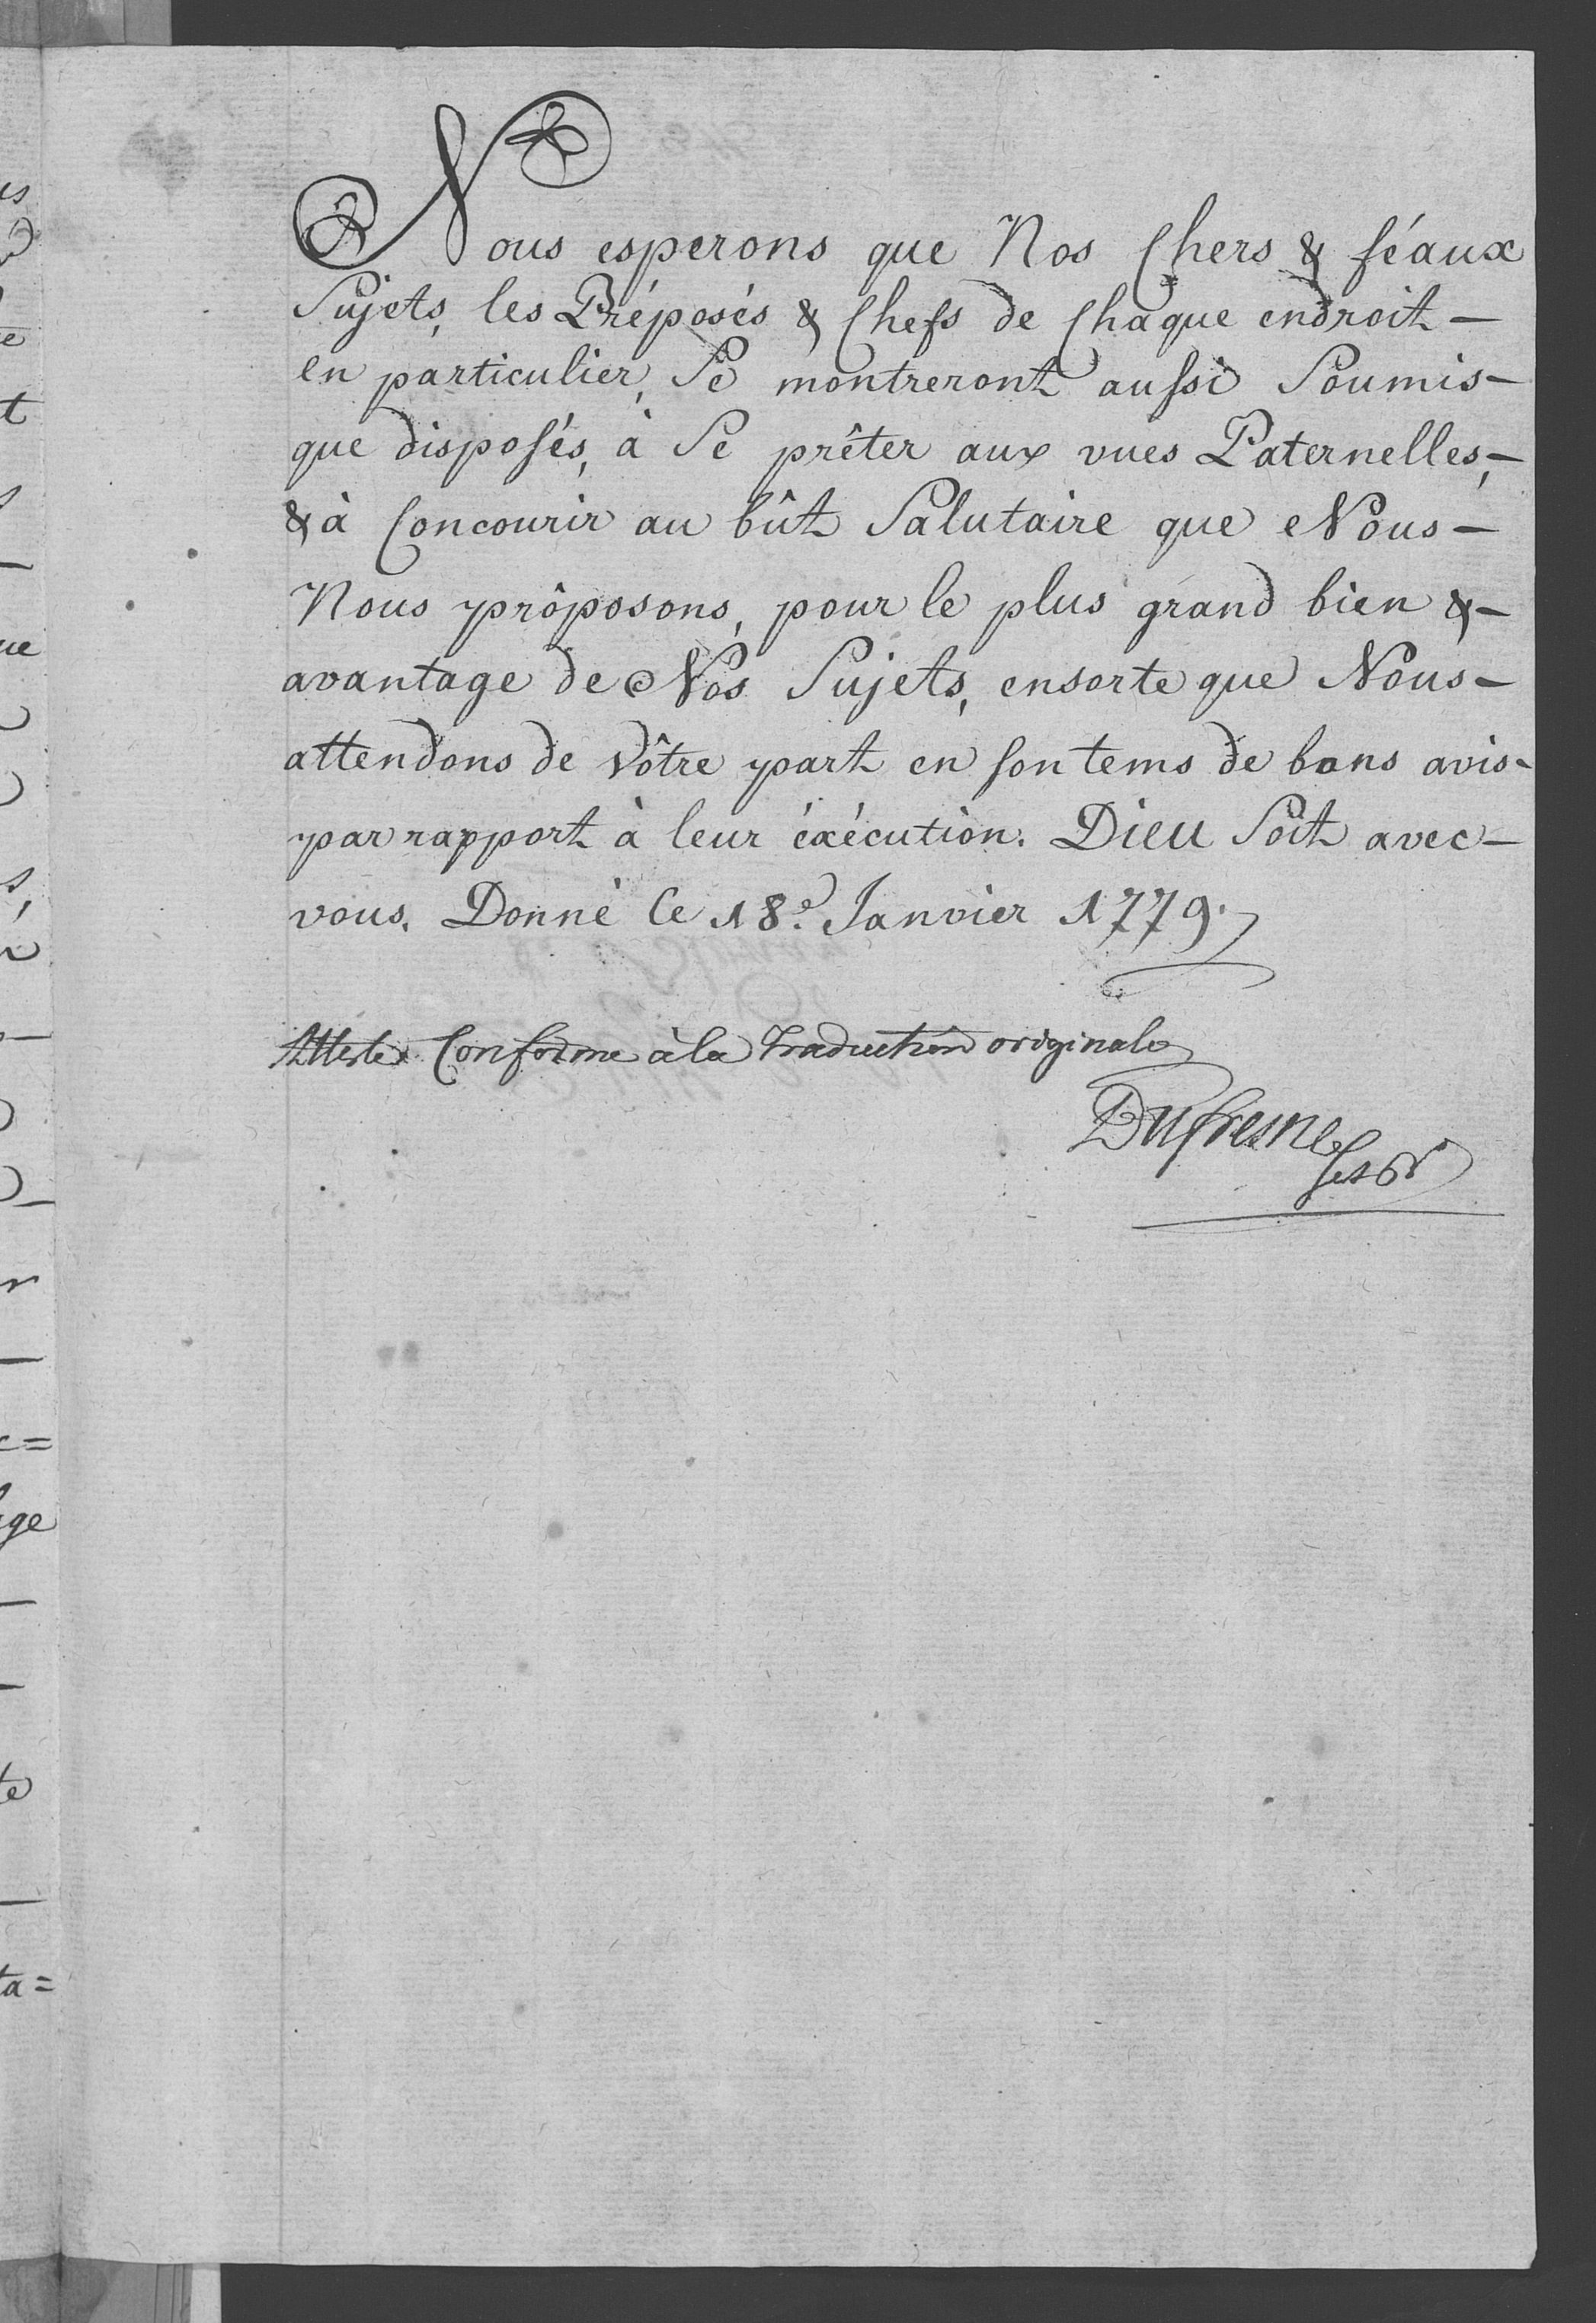 Nous esperons que Nos Chers & féaux
Sujets, les Préposés & Chefs de Chaque endroit –
en particulier, Se montreront aussi Soumis –
que disposés, à Se prêter aux vues Paternelles, –
& à Concourir au bût Salutaire que Nous –
Nous proposons, pour le plus grand bien & –
avantage de Nos Sujets, ensorte que Nous –
attendons de vôtre part en son tems de bons avis –
par rapport à leur éxécution. Dieu Soit avec –
vous. Donné Ce 18.e Janvier 1779.
Atteste Conforme à la Traduction originale
Dufresne